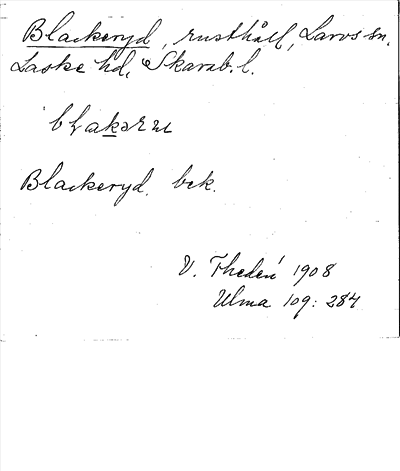 Blackeryd, rusthåll, Larvs sn,
Laske hd, Skarab. l.
Blackeryd. bek.
V. Thedén 1908
Ulma 109: 284